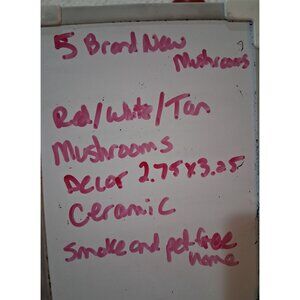 5 Brand New
Mushrooms
Red/White/Tan
Mushrooms
Decor 2.75x3.25
Ceramic
Smoke and pet-free
home